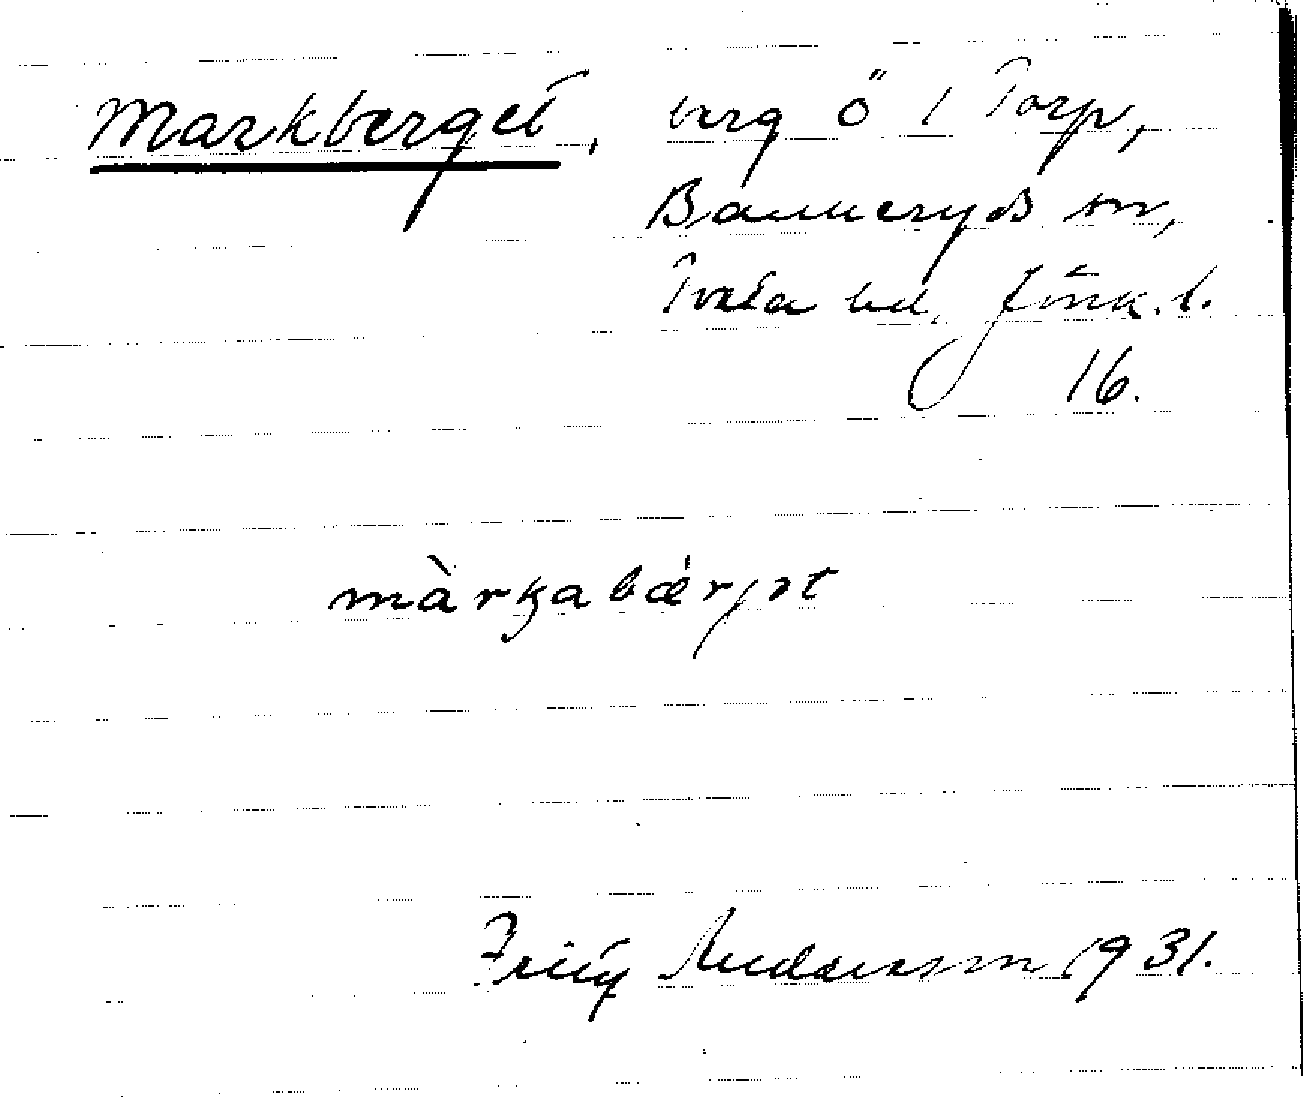 Markberget, berg Ö i Torp,
Bankeryds sn,
Tveta hd, Jönk. l.
16.
màrkabǽrjət
Fritz Andersson 1931.